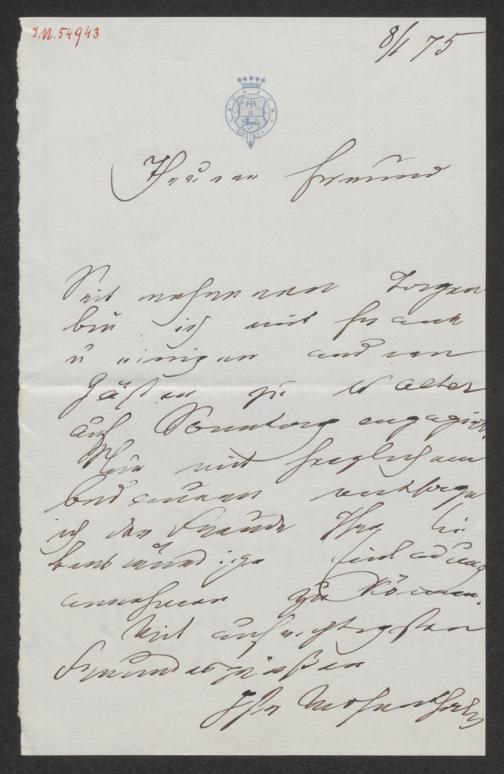 I.N. 54943
8/1 75
Theurer Freund
Seit mehreren Tagen
bin ich mit Frank
u einigen anderen
Gästen zu Walter
auf Sonntag engagirt.
Nur mit herzlichem
bedauern entsage
ich der Freude Ihre lie
benswürdige Einladung
annehmen zu können.
Mit aufrichtigsten
Freundesgrüßen
Ihr Mosenthal